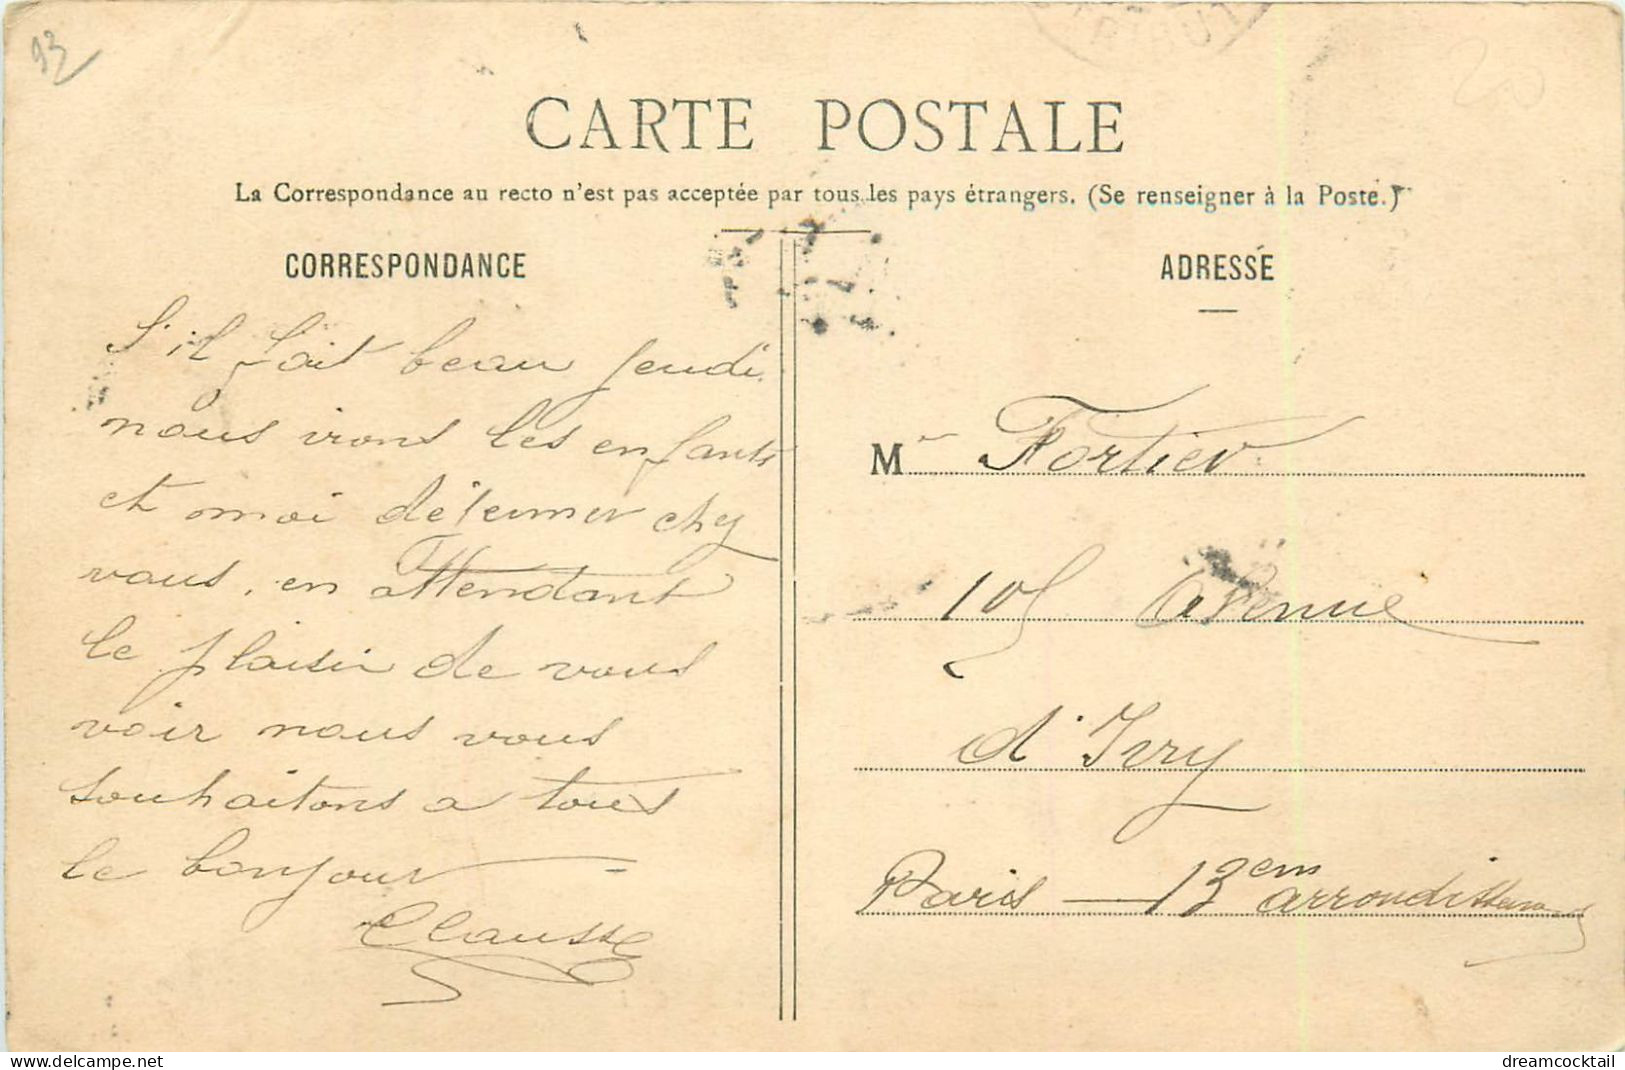 93
20
CARTE POSTALE
La Correspondance au recto n'est pas acceptée par tous les pays étrangers. (Se renseigner à la Poste.)
CORRESPONDANCE
S'il fait beau jeudi
nous irons les enfants
et moi déjeuner chez
vous, en attendant
le plaisir de vous
voir nous vous
souhaitons a tous
le bonjour
Clausse
ADRESSE
Mr Fortier
105 avenue
d'Ivry
Paris — 13em arrondissement
www.delcampe.net
dreamcocktail